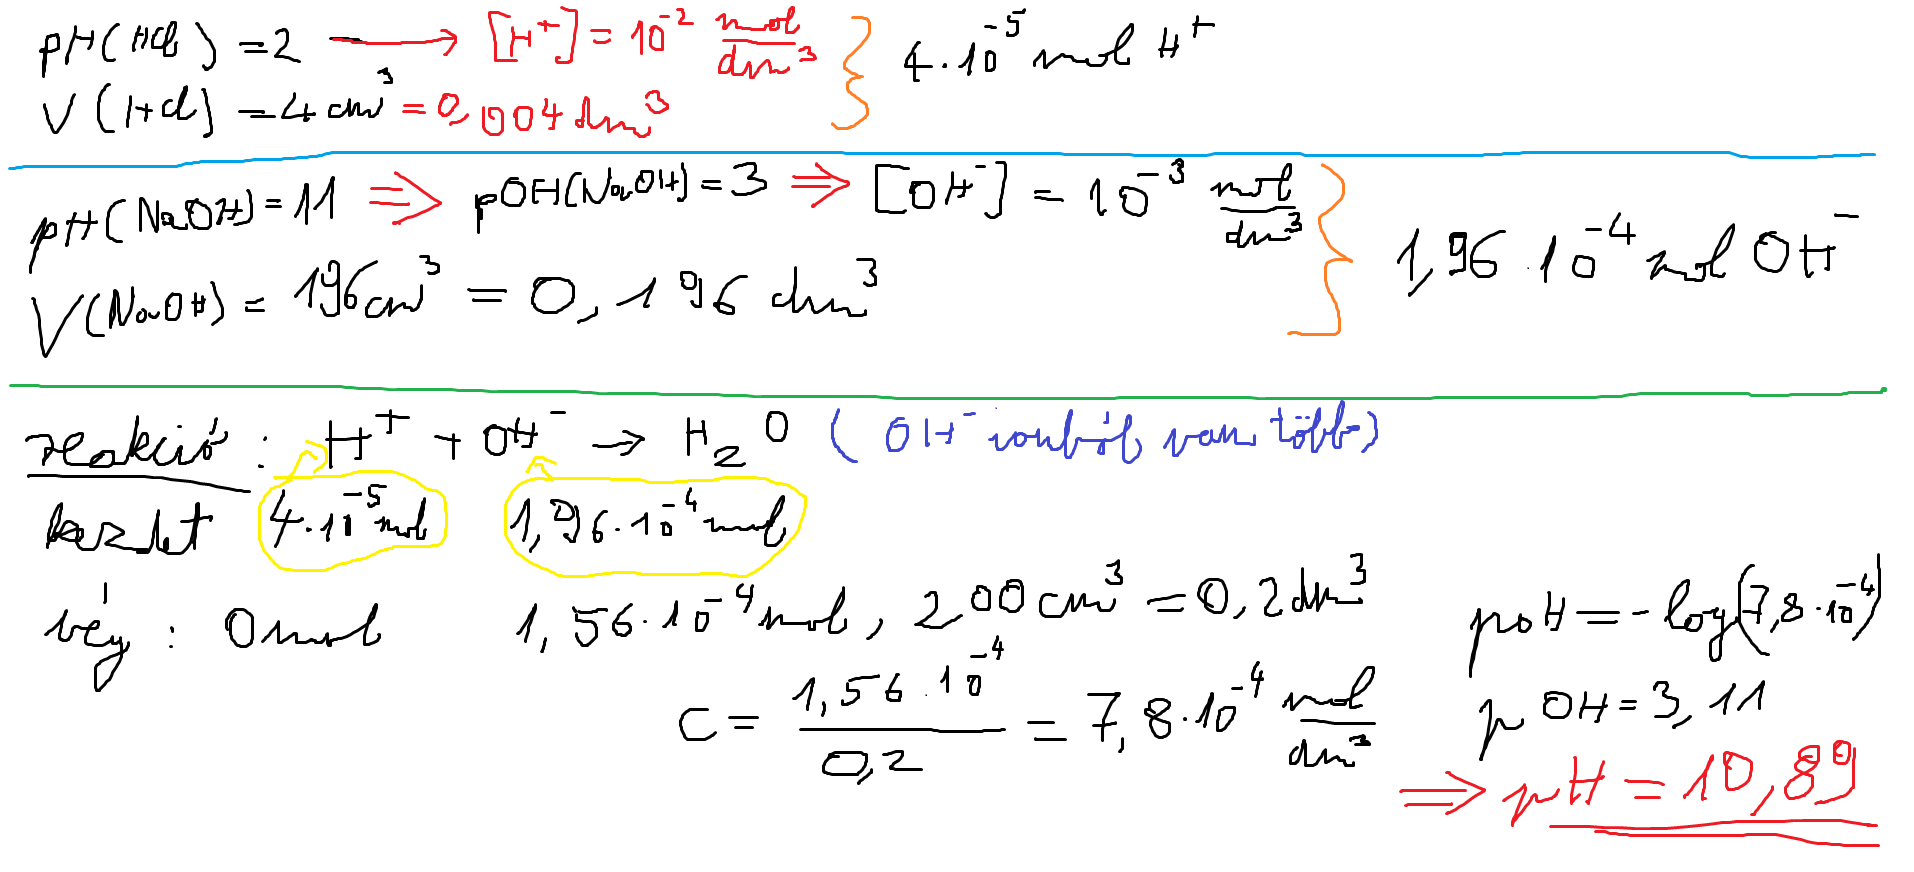 pH(HCl) = 2 → [H⁺] = 10⁻² mol/dm³ } 4·10⁻⁵ mol H⁺
V(HCl) = 4 cm³ = 0,004 dm³
pH(NaOH) = 11 ⇒ pOH(NaOH) = 3 ⇒ [OH⁻] = 10⁻³ mol/dm³ } 1,96·10⁻⁴ mol OH⁻
V(NaOH) = 196 cm³ = 0,196 dm³
reakció: H⁺ + OH⁻ → H₂O (OH⁻ ionból van több)
kezdet 4·10⁻⁵ mol 1,96·10⁻⁴ mol
vég: 0 mol 1,56·10⁻⁴ mol, 200 cm³ = 0,2 dm³
c = 1,56·10⁻⁴/0,2 = 7,8·10⁻⁴ mol/dm³
pOH = -log(7,8·10⁻⁴)
pOH = 3,11
⇒ pH = 10,89